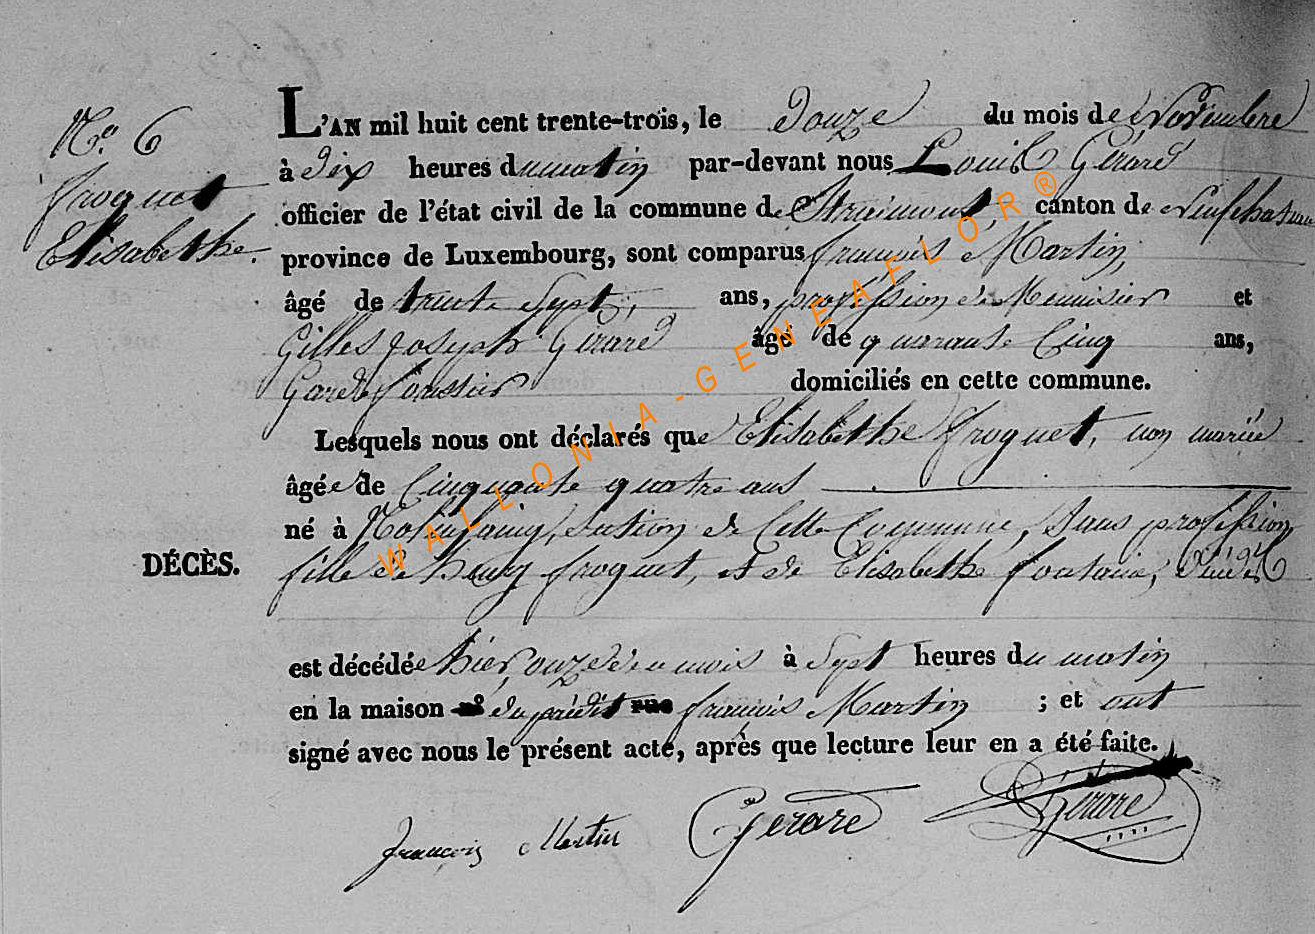 N.o 6
froquet
Elisabethe.
L'AN mil huit cent trente-trois, le Douze du mois de Novembre
à Dix heures du matin par-devant nous Louis Gérard
officier de l'état civil de la commune de Straimont, canton de Neufchateau
province de Luxembourg, sont comparus françois Martin,
âgé de trente Sept, ans, profession de Menuisier et
Gilles joseph Gérard âgé de quarante Cinq ans,
Garde forestier domiciliés en cette commune.
Lesquels nous ont déclarés que Elisabethe froquet, non mariée
âgée de Cinquante quatre ans
né à section de Cette Commune, Sans profession
DÉCÈS.
fille de henry froquet, et de Elisabethe fontaine,
est décédée hier, onze de ce mois à Sept heures du matin
en la maison n° du prédit rue françois Martin ; et ont
signé avec nous le présent acte, après que lecture leur en a été faite.
françois Martin Gerard Gérard
WALLONIA-GENEAFLOR®